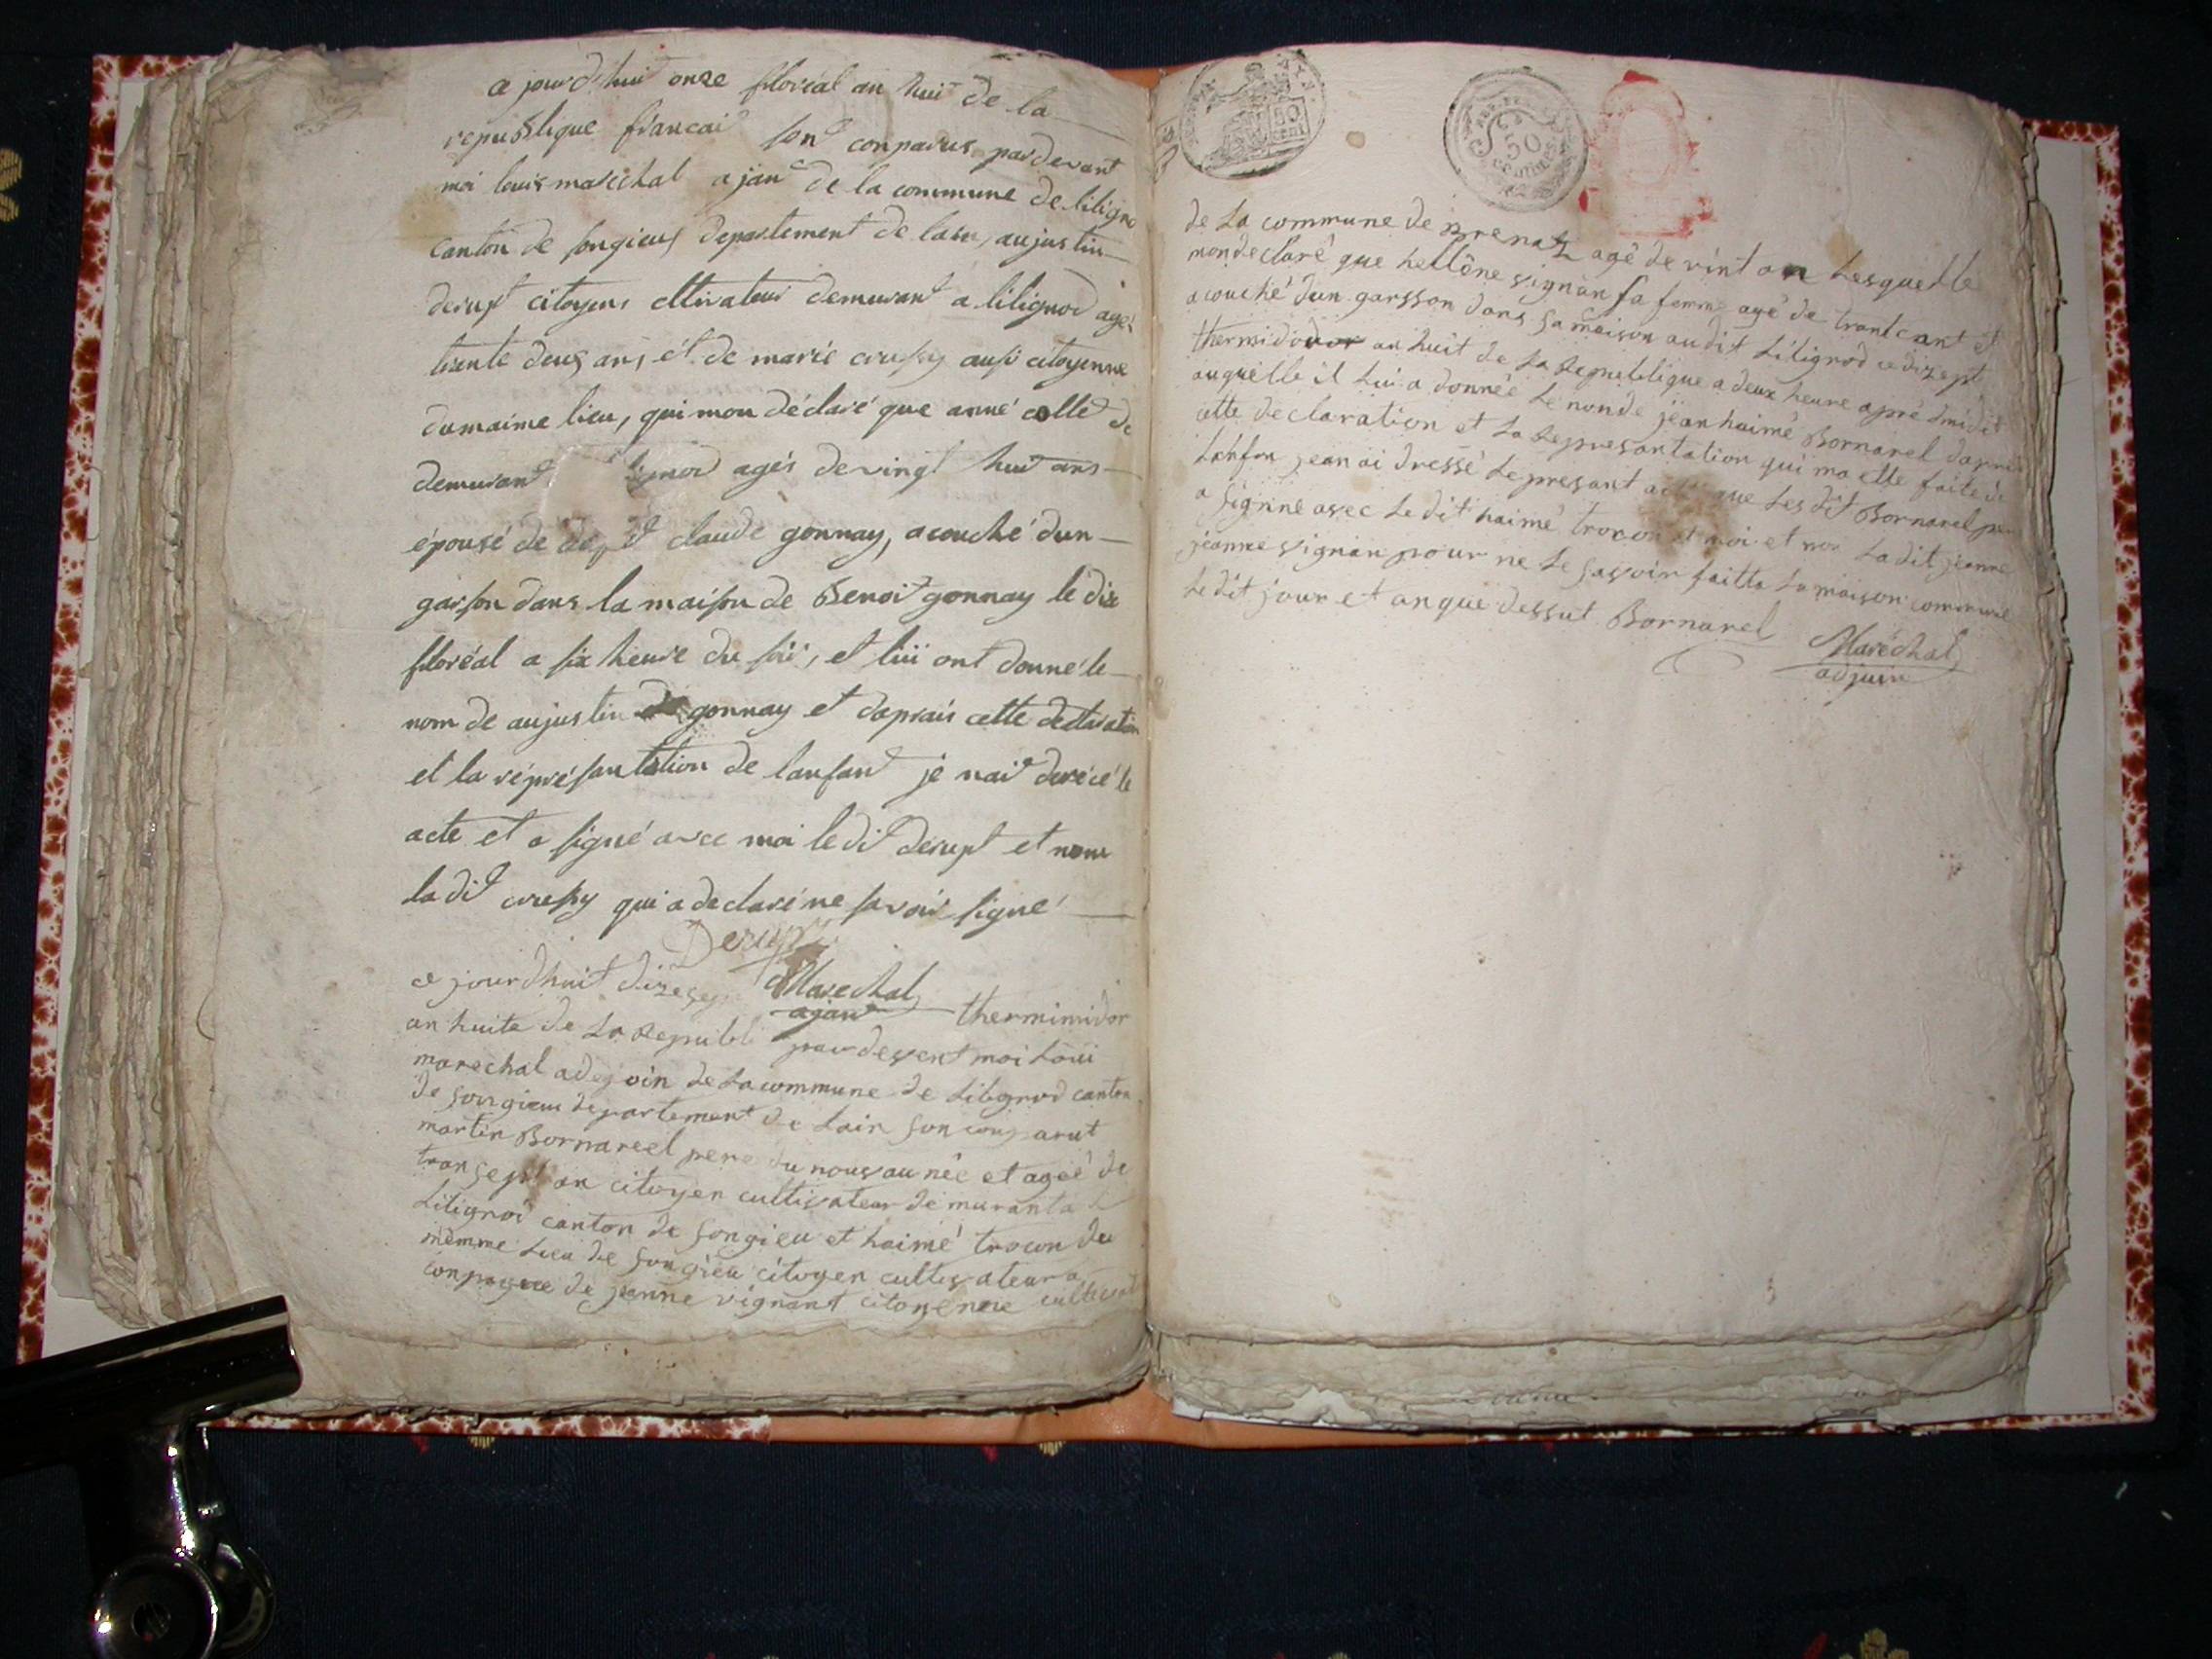 a jourdhui onze floréal an huit de la
republique francai son conparus pardevant
moi louis maréchal ajant de la commune de lilignod
canton de songieus departement de lain, aujustin
derupt citoyens cltivateur demurant a lilignod agés
trente deus ans et de marie crussy aussi citoyenne
dumaime lieu, qui mon déclaré que anné collet de
demurant agés de vingt huit ans
épousé de claude gonnay, acouché dun
garson dans la maison de Benoit gonnay le dix
floréal a six heure du soir, et lui ont donné le
nom de aujustin gonnay et daprais cette declaration
et la réprésantation de lanfant je nait derécé le
acte et a signé avec moi ledit derupt et nom
ladit crussy qui a declaré ne savoir signé
Derupt
Marechal
ajant
ce jourdhuit dizesept thermimidor
an huite de La Republi par devent moi Loui
marechal adejoin de La commune de Lilignod canton
de songieu departement de Lain son conparut
martin Bornareel pere du nouvau née et ageé de
tran sept an citoyen cultivateur demurant a
Lilignod canton de songieu et haimé trocon du
mémme Lieu de songieu citoyen cultivateur a
conpagne de jeanne vignant citoyenne
REP. FRA.
50 cent
50
centimes
de La commune de prenaz agé de vint an Lesquelle
mon declaré que hellène vignan sa femme agé de trant cant et
acouché dun garsson dans sa maison audit Lilignod ce dizept
thermidor an huit de La Republique a deux heure apré dmidit
auquelle il Lui a donnée Le non de jean haimé Bornarel daprè
cette declaration et La Representation qui ma ette faite de
Lahfan jean ai dressé Le presant que Les dit Bornarel pere
a signné avec Le dit haimé trocon et moi et non La dit jeanne
jeanne vignan pour ne Le savoir faitta La maison commune
Le dit jour et an que dessut Bornarel
Maréchal
adjuin